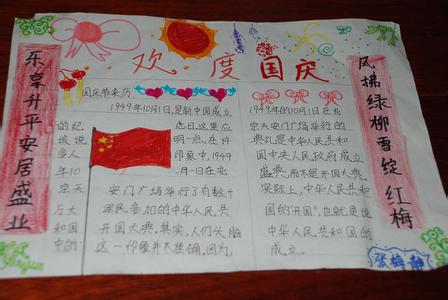 欢度国庆
乐享升平安居盛业
国庆节来历
1949年10月1日,是新中国成立
的纪念日,这里应
该说明一点,在许
多人印象中,1949
年10月一日在北
京天安门广场举行了有数十
万军民参加的中华人民共
和国开国大典,其实,人们头脑
中的这一印象并不准确,因为,
1949年的10月1日在北
京天安门广场举行的
典礼是中华人民共和
国中央人民政府成立
盛典,而不是开国大典。
实际上,中华人民共和
国的"开国",也就是说
中华人民共和国的
成立。
风拂绿柳雪绽红梅